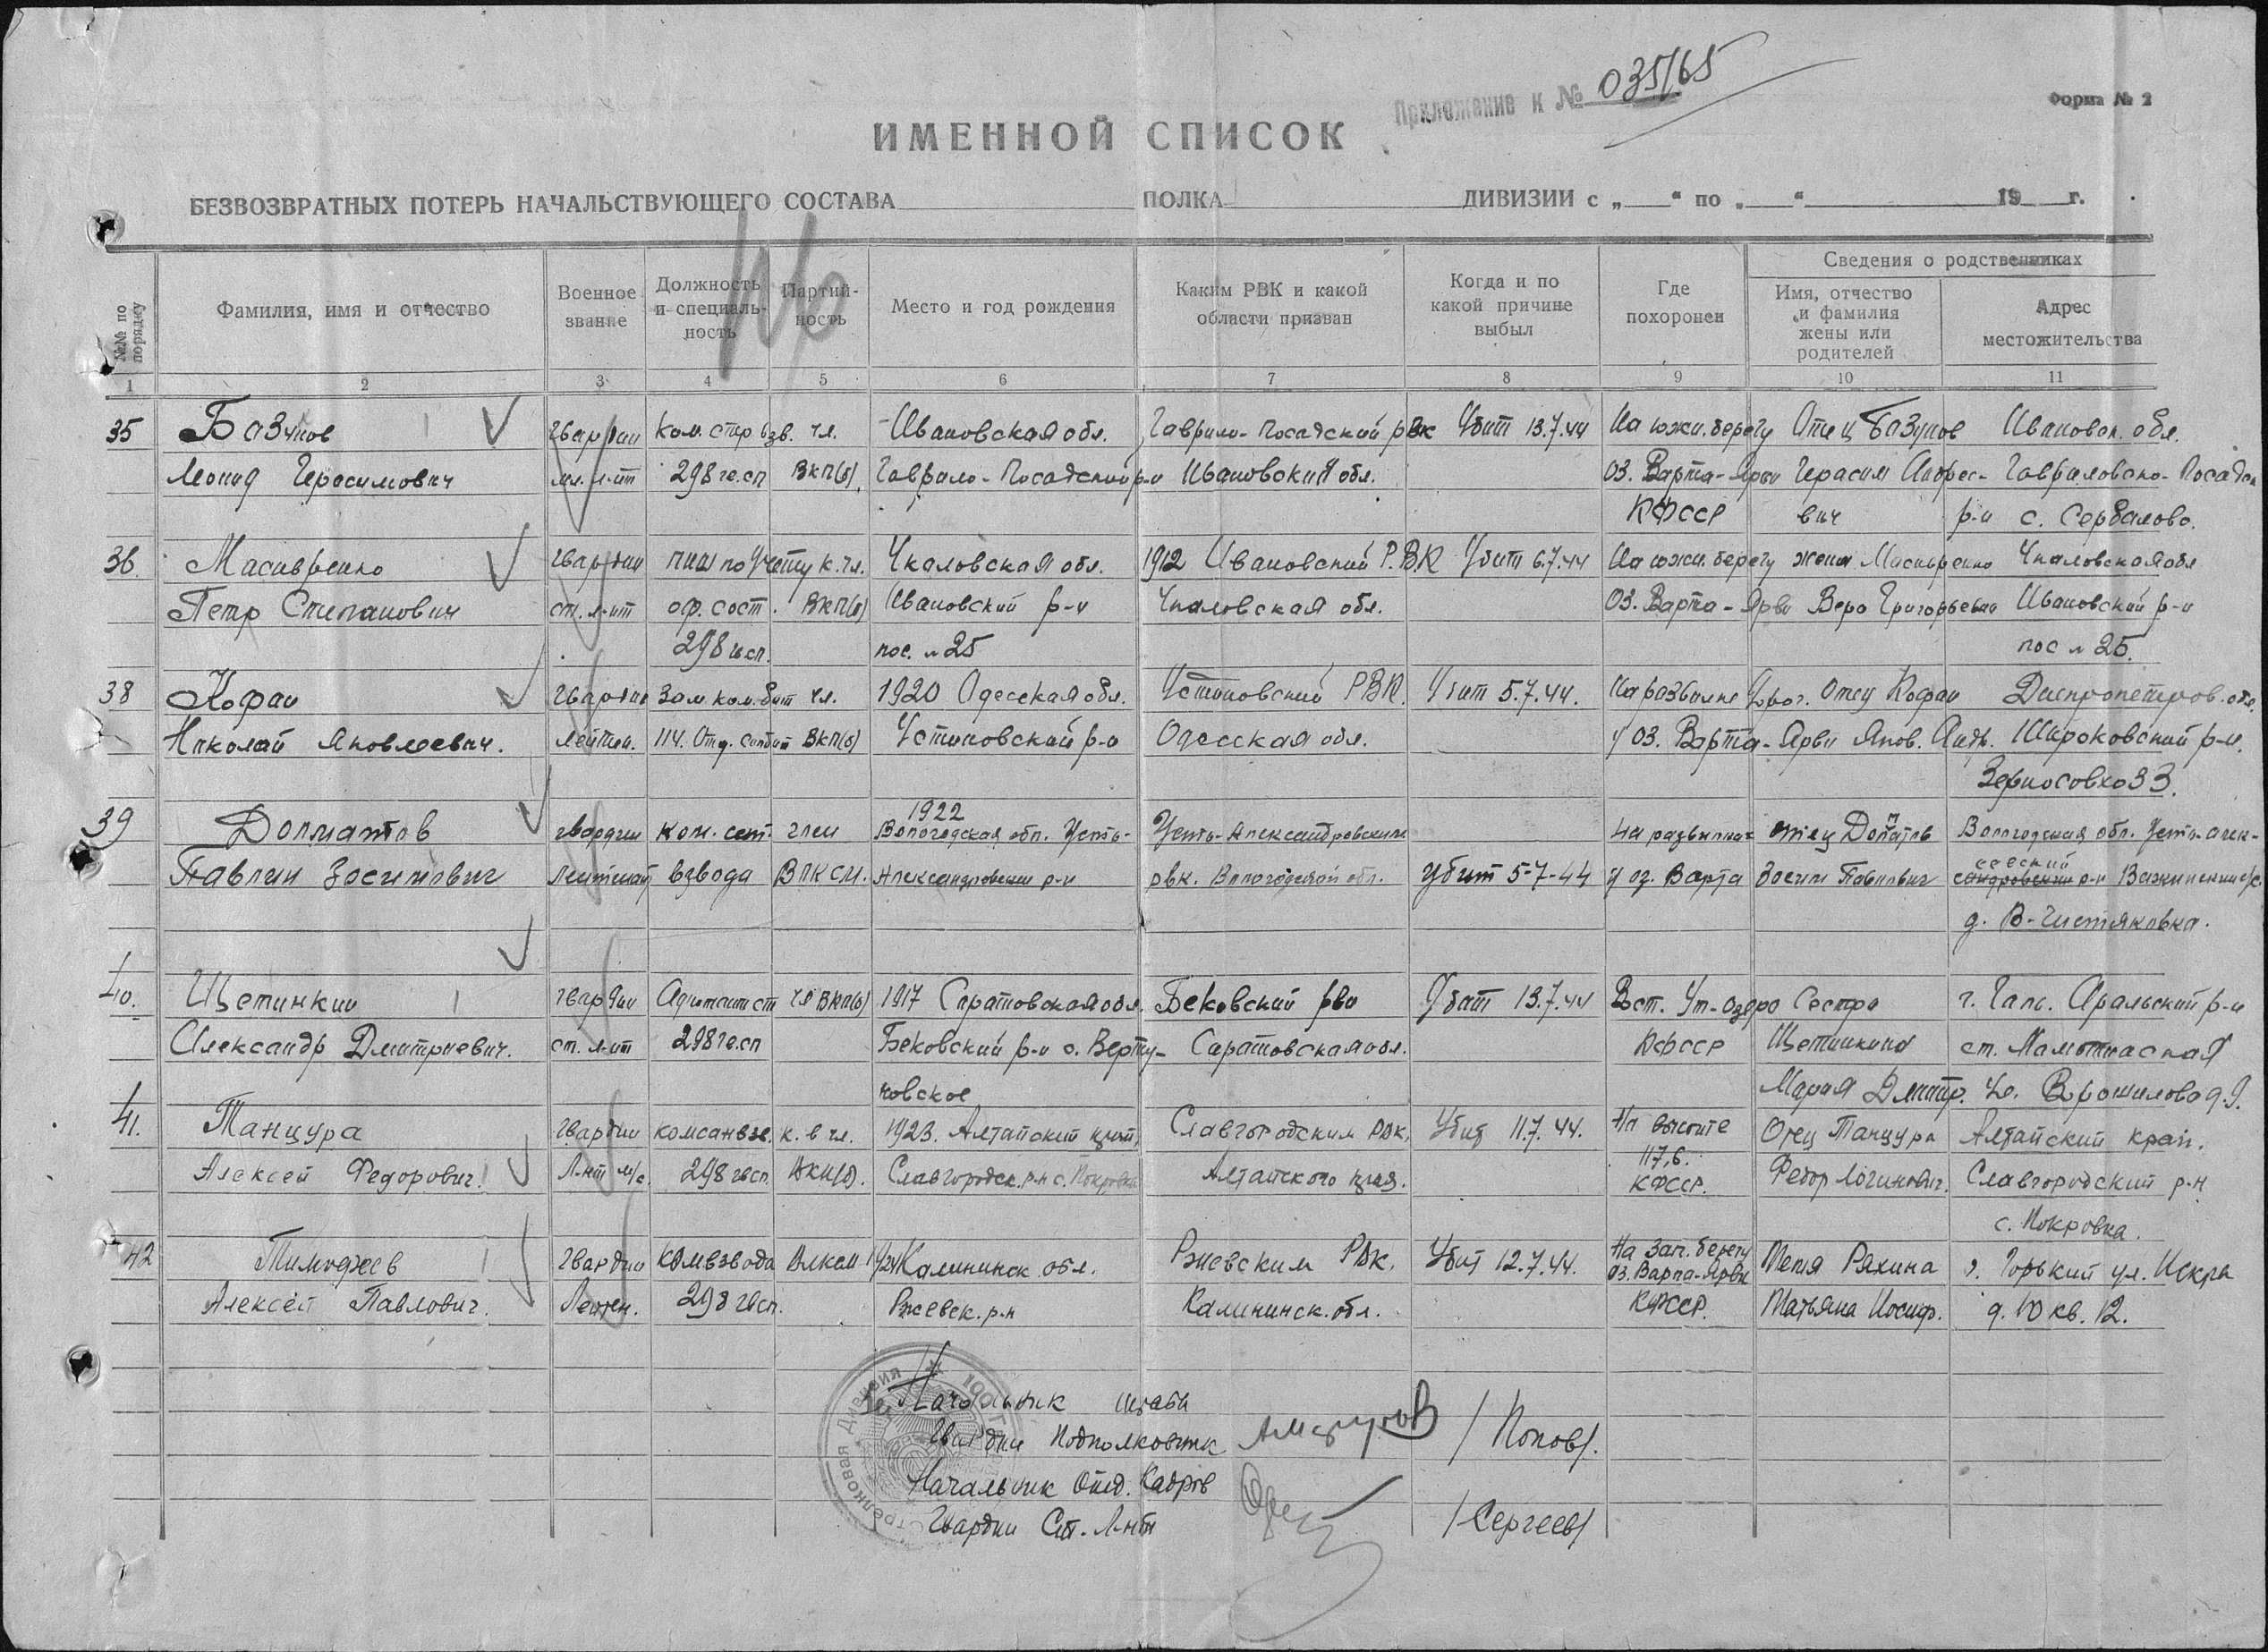 Приложение к № 035165
Форма № 2
ИМЕННОЙ СПИСОК
БЕЗВОЗВРАТНЫХ ПОТЕРЬ НАЧАЛЬСТВУЮЩЕГО СОСТАВА ПОЛКА ДИВИЗИИ с „ “ по „ “ 19 г.
№№ по порядку
Фамилия, имя и отчество
Военное звание
Должность и специальность
Партийность
Место и год рождения
Каким РВК и какой области призван
Когда и по какой причине выбыл
Где похоронен
Сведения о родственниках
Имя, отчество и фамилия жены или родителей
Адрес местожительства
1 2 3 4 5 6 7 8 9 10 11
35 Базунов гвардии Ком. стр. взв. чл. Ивановская обл. Гаврило-Посадский рвк Убит 13.7.44 На южн. берегу Отец Базунов Ивановск. обл.
Леонид Герасимович мл. л-нт 298 гв.сп ВКП(б) Гаврило-Посадский р-н Ивановский обл. оз. Варпа-Ярви Герасим Андрее- Гавриловско-Посадск
КФССР вич р-н с. Сербилово.
36. Гвардии пнш по учету к. чл. Чкаловская обл. 1912 Ивановский Р.В.К Убит 6.7.44 На южн. берегу жена Чкаловская обл
Петр Степанович ст. л-нт оф. сост. ВКП(б) Ивановский р-н Чкаловская обл. оз. Варпа-Ярви Вера Григорьевна Ивановский р-н
298 гв.сп. пос. №25 пос №25.
38 Кофан гвардии Зам. ком. бат чл. 1920 Одесская обл. Устиновский РВК. Убит 5.7.44. На развилке дорог. Отец Кофан Днепропетров. обл.
Николай Яковлевич. лейтен. 114. Отд. ВКП(б) Устиновский р-н Одесская обл. у оз. Варпа-Ярви Яков. Андр. Широковский р-н.
Зерносовхоз 3.
39 Долматов гвардии ком. сап. член 1922 Вологодская обл. Усть- Усть-Александровским на развилке отец Долматов Вологодская обл. Усть-алек-
Павлин Зосимович лейтенант взвода ВЛКСМ. Александровский р-н рвк. Вологодской обл. убит 5-7-44 у оз. Варпа Зосим Павлович сеевский р-н с/с
д. В-Чистяковка.
40. Щетинкин гвардии Адъютант ст чл ВКП(б) 1917 Саратовская обл. Бековский рвк Убит 13.7.44 Вост. Ут-озеро Сестра Аральский р-н
Александр Дмитриевич. ст. л-нт 298 гв.сп Бековский р-н с. Верту- Саратовская обл. КФССР Щетинкина ст.
новское Мария Дмитр. Ул. Ворошилова д 9.
41. Танцура гвардии комсанвзв. к. в чл. 1923. Алтайский край, Славгородским Рвк. Убит 11.7.44. На высоте Отец Танцура Алтайский край.
Алексей Федорович. Л-нт м/с. 298 гвсп. ВКП(б). Славгородск. р-н с. Покровка Алтайского края. 117,6. КФССР. Федор Логинович. Славгородский р-н
с. Покровка.
42 Тимофеев гвардии комвзвода Влксм 1924 Калининск. обл. Ржевским Рвк. Убит 12.7.44. На зап. берегу оз. Варпа-Ярви Тетя Ряхина г. Горький ул. Искры
Алексей Павлович. Лейтен. 298 гвсп. Ржевск. р-н Калининск. обл. КФССР. Татьяна Иосиф. д. 10 кв. 12.
Начальник штаба
Гвардии Подполковник /Попов/.
Начальник Отд. Кадров
Гвардии Ст. Л-нт /Сергеев/
Стрелковая Дивизия 100